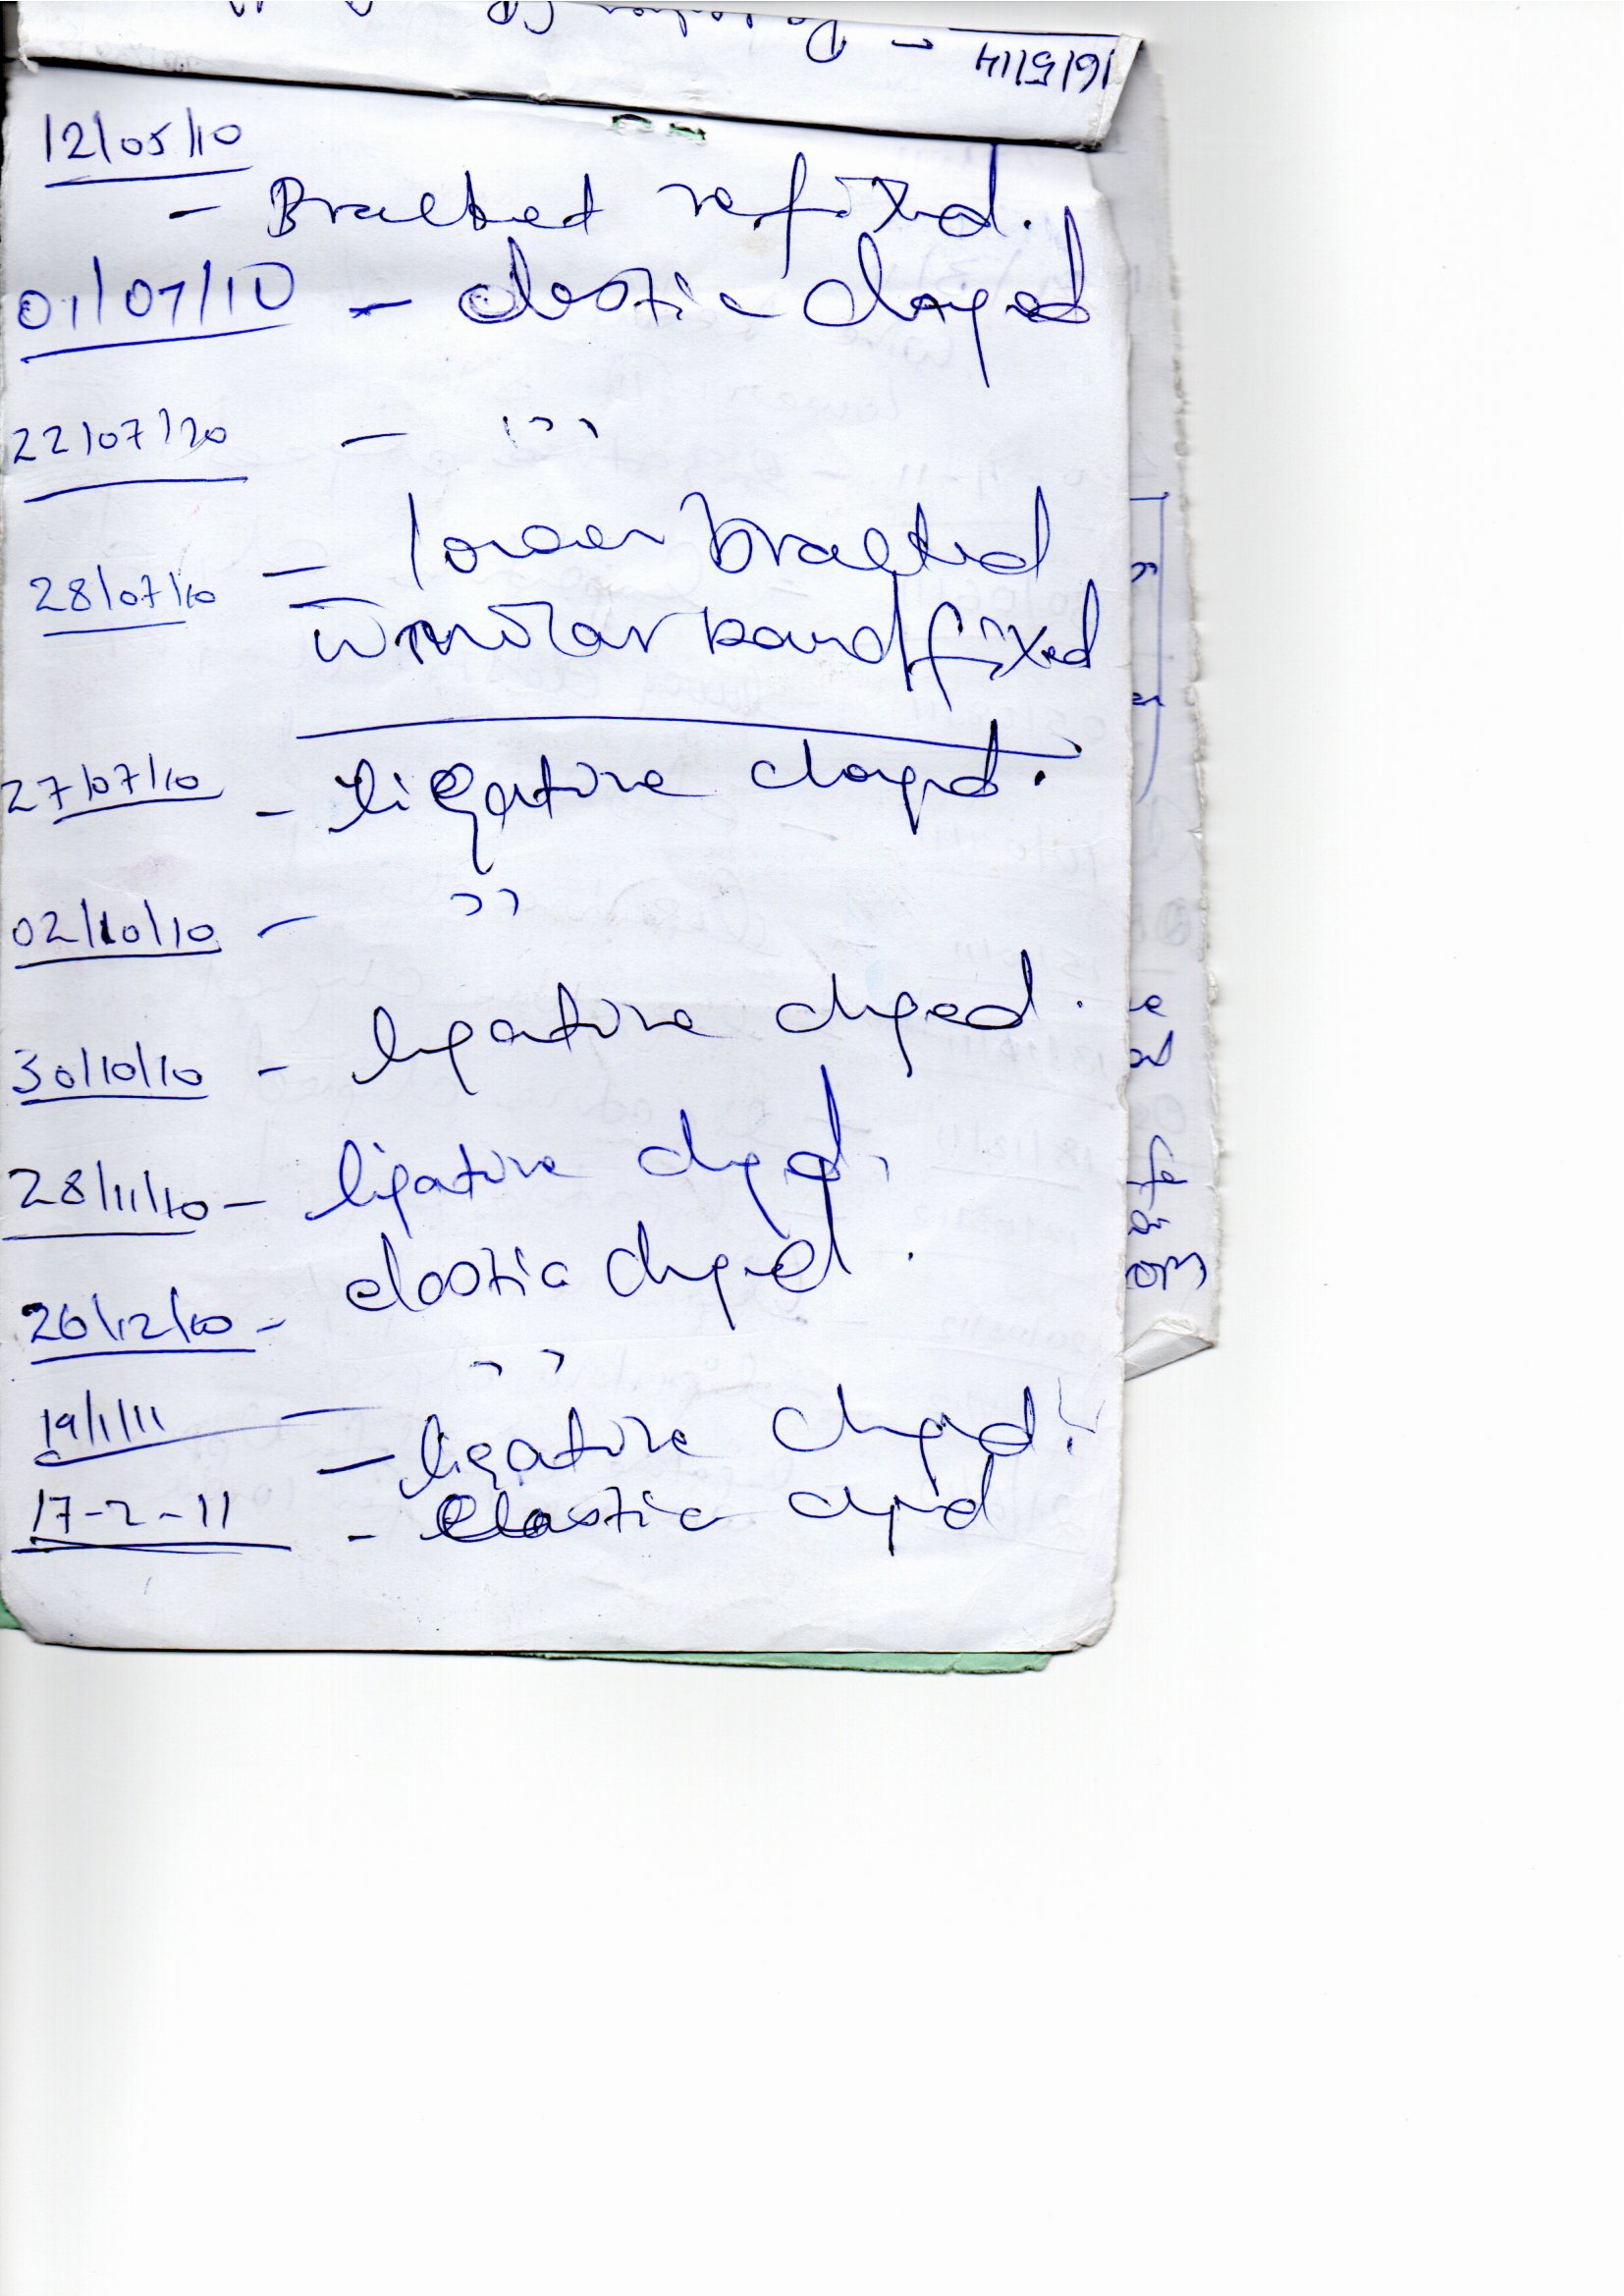 16/5/14 -
12/05/10
- Bracked refixed.
01/07/10 - elastic changed
22/07/20 - ,, 
28/07/10 - lower bracked
molar band fixed
27/07/10 - ligature changed.
02/10/10 - ,,
30/10/10 - ligature chged.
28/11/10 - ligature chged.
26/12/10 - elastic chged.
19/1/11 - ,,
- ligature chged.
17-2-11 - Elastic chged